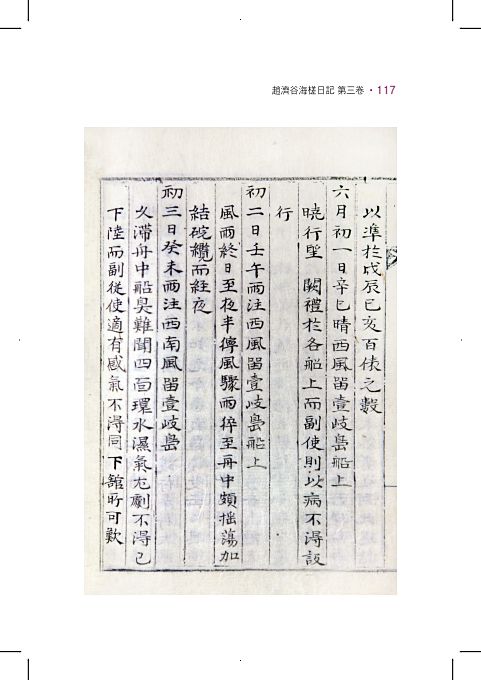 趙濟谷海槎日記 第三卷 · 117
以準於戊辰己亥百俵之數
六月初一日辛巳晴西風留壹岐島船上
曉行望 闕禮於各船上而副使則以病不得設
行
初二日壬午雨注西風留壹岐島船上
風雨終日至夜半儜風驟雨猝至舟中頗摇蕩加
結碇纜而経夜
初三日癸未雨注西南風留壹岐島
久滯舟中船臭難聞四面環水濕氣尤劇不得已
下陸而副從使適有感氣不得同下舘所可歎